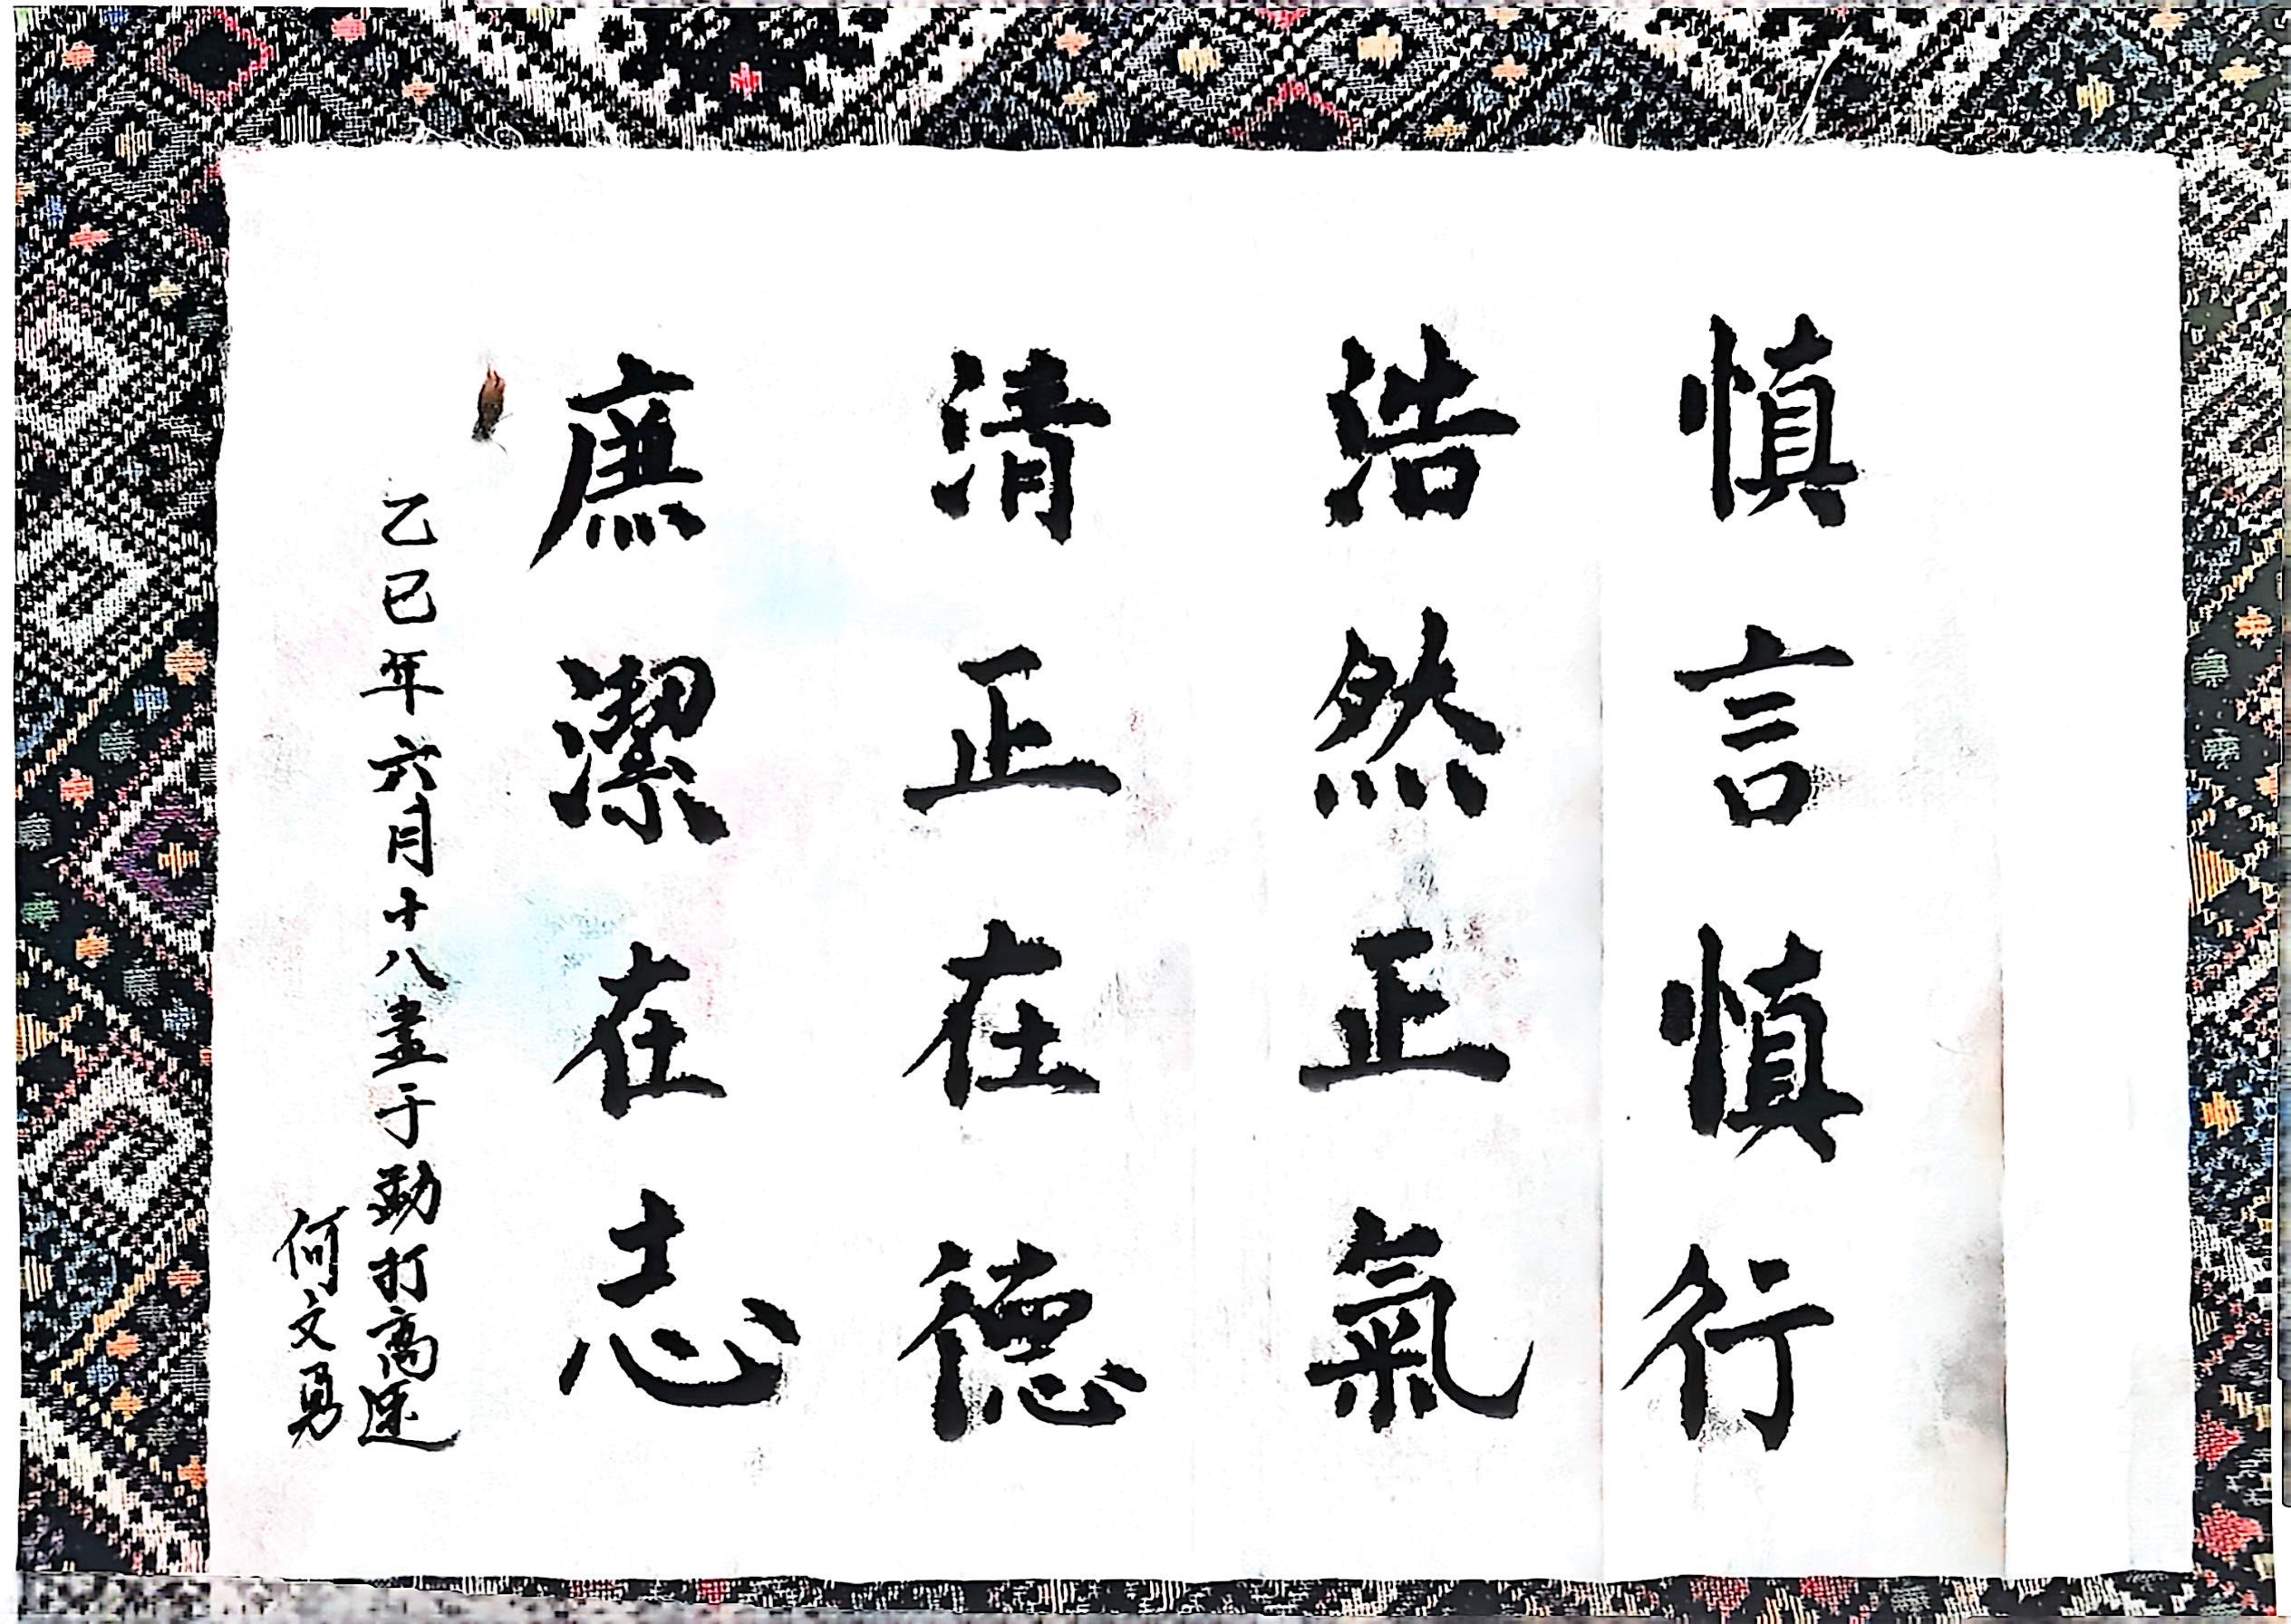 慎言慎行
浩然正氣
清正在德
廉潔在志
乙巳年六月十八畫于勐打高速
何文勇